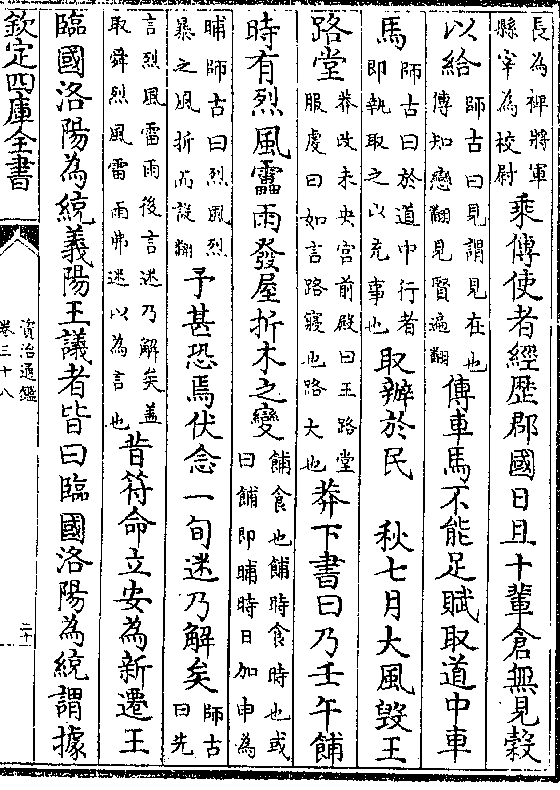 長為裨將軍
縣宰為校尉
乘傳使者經歷郡國日且十輩倉無見穀
以給
師古曰見謂見在也
傳知戀翻見賢遍翻
傳車馬不能足賦取道中車
馬
師古曰於道中行者
即執取之以充事也
取辦於民　秋七月大風毀王
路堂
莽改未央宮前殿曰王路堂
服虔曰如言路寢也路大也
莽下書曰乃壬午餔
時有烈風靁雨發屋折木之變
餔食也餔時食時也或
曰餔即晡時日加申為
晡師古曰烈風烈
暴之風折而設翻
予甚恐焉伏念一旬迷乃解矣
師古
曰先
言烈風雷雨後言迷乃解矣蓋
取舜烈風雷雨弗迷以為言也
昔符命立安為新遷王
臨國洛陽為統義陽王議者皆曰臨國洛陽為統謂據
欽定四庫全書
資治通鑑
卷三十八
二十一